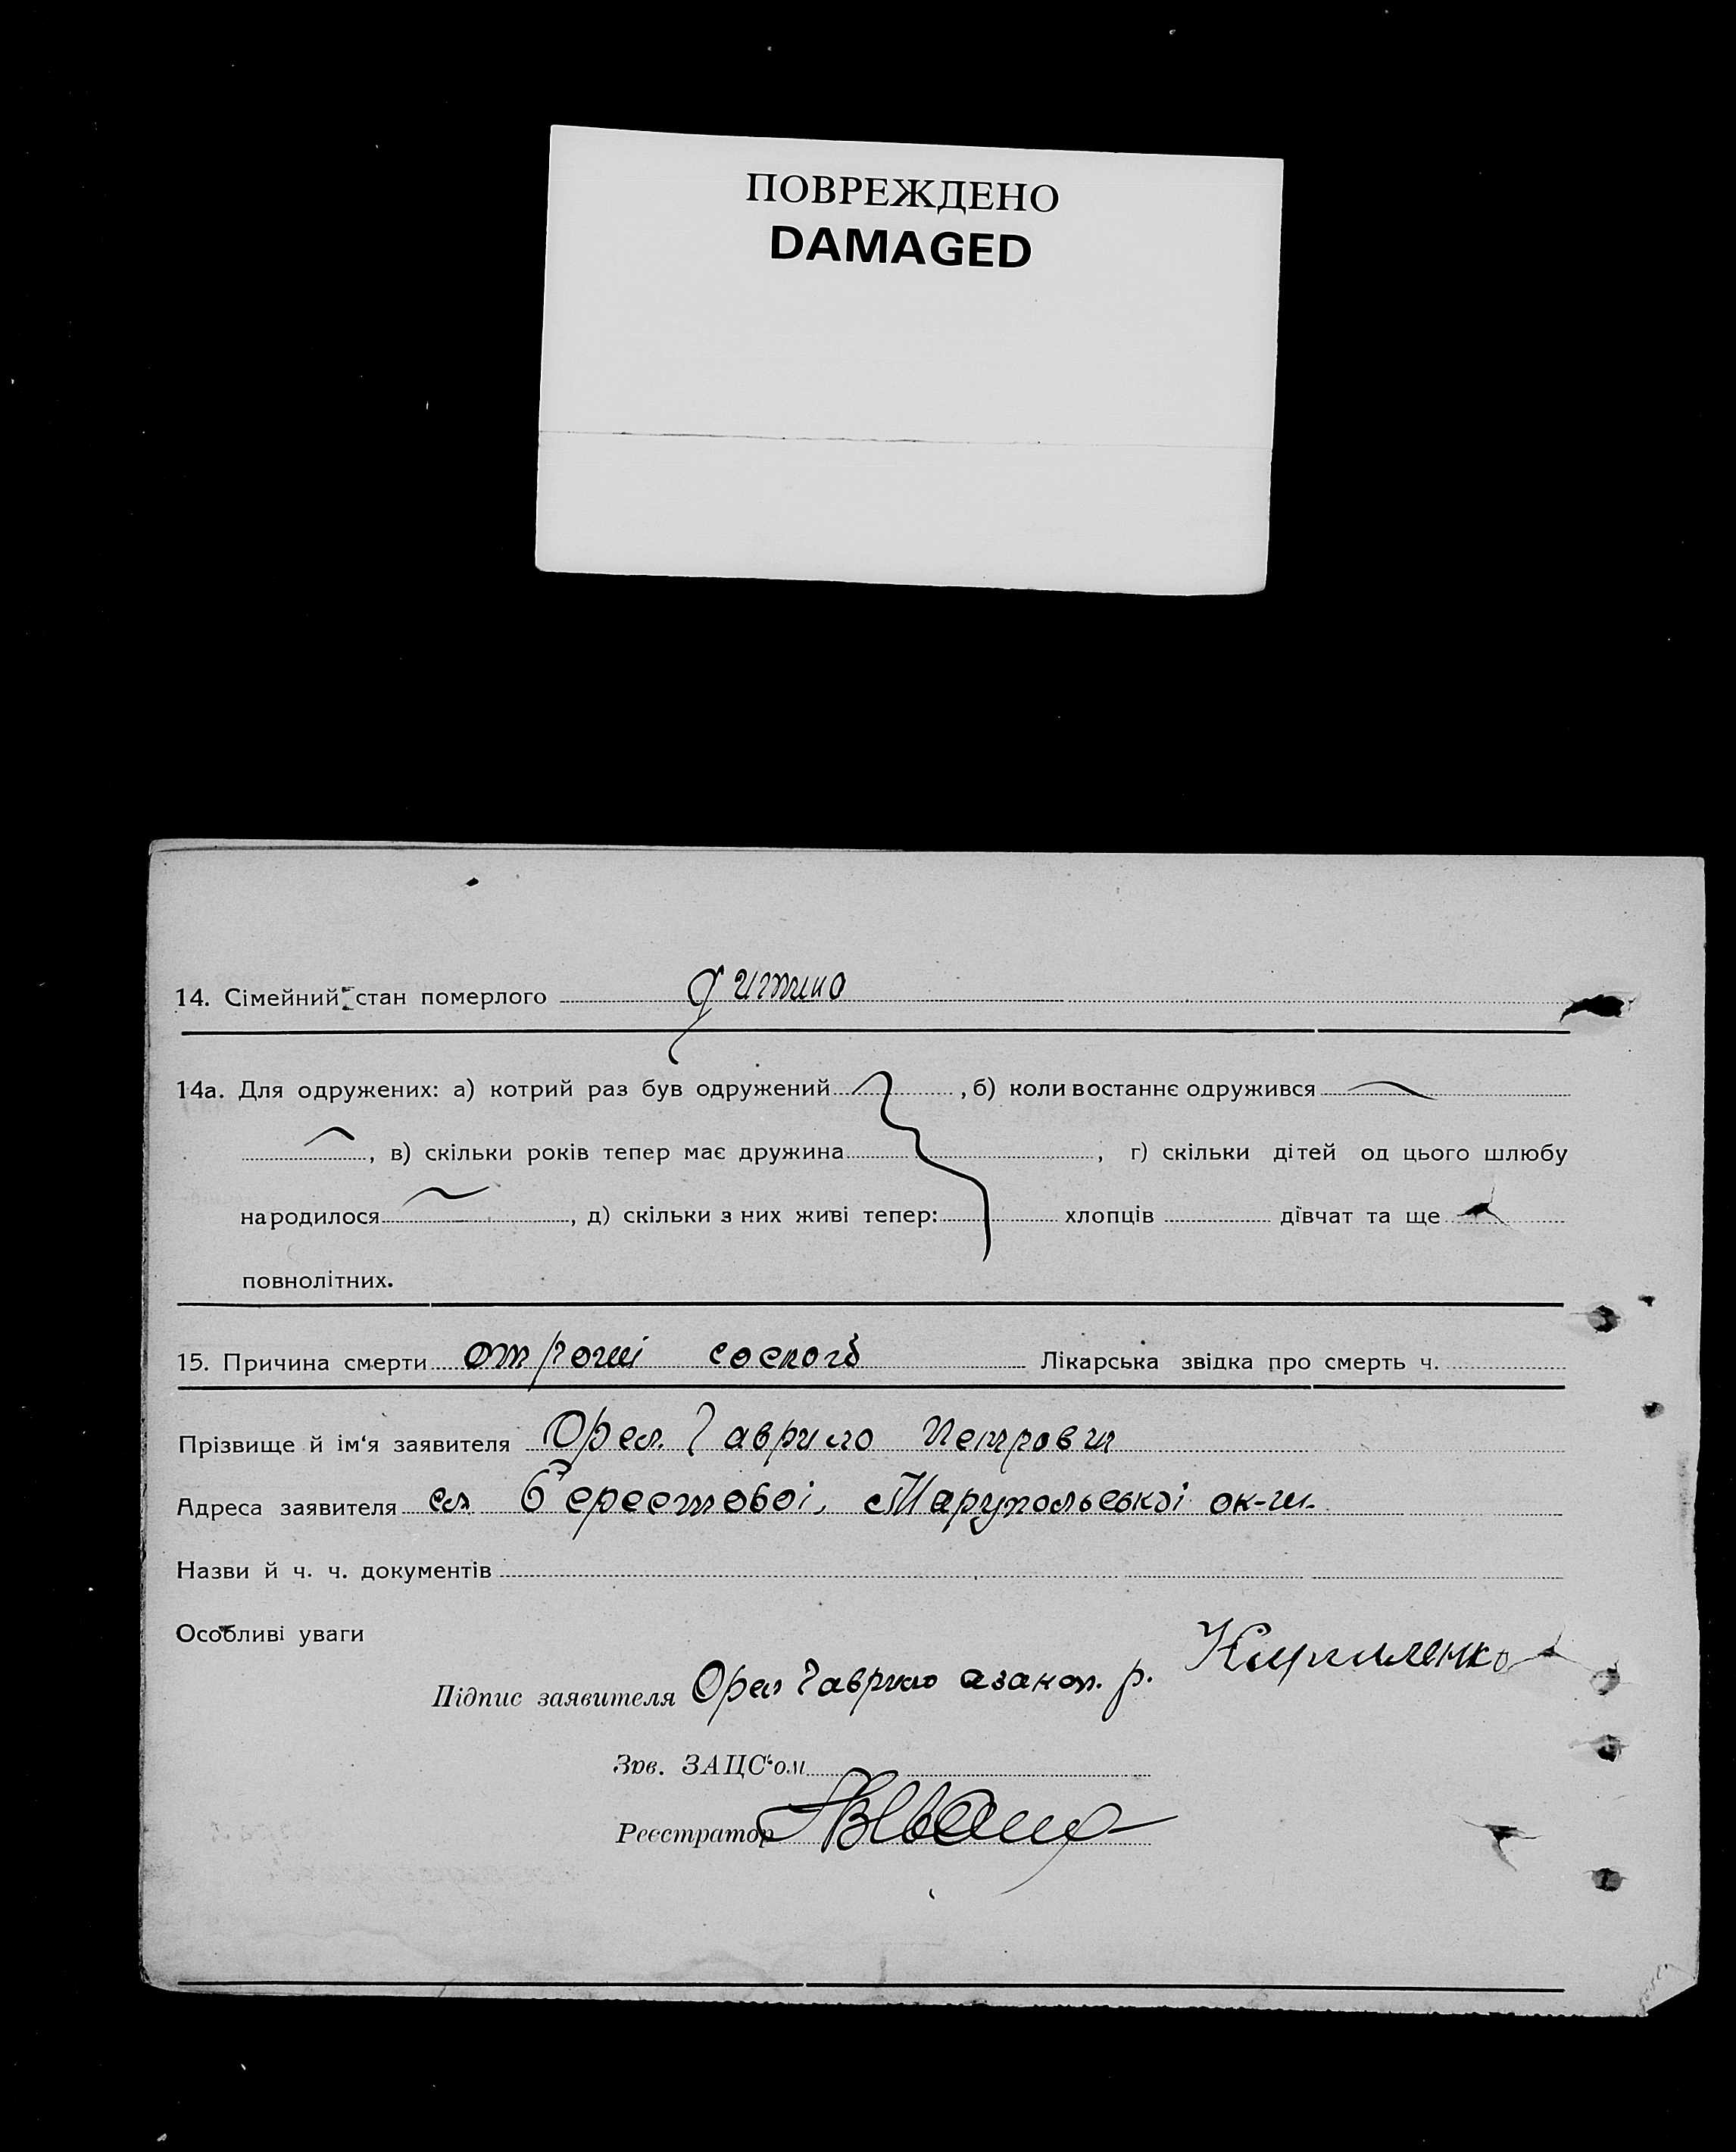 ПОВРЕЖДЕНО
DAMAGED
14. Сімейний стан померлого дитина
14а. Для одружених: а) котрий раз був одружений , б) коли востаннє одружився
, в) скільки років тепер має дружина , г) скільки дітей од цього шлюбу
народилося , д) скільки з них живі тепер: хлопців дівчат та ще
повнолітних.
15. Причина смерти от Лікарська звідка про смерть ч.
Прізвище й ім'я заявителя Орел Гаврило Петрович
Адреса заявителя сл. Берестової, Марупольської ок-и.
Назви й ч. ч. документів
Особливі уваги
Підпис заявителя Орел Гаврило а за нег. р. Кириленко
Зав. ЗАЦС'ом
Реєстратор